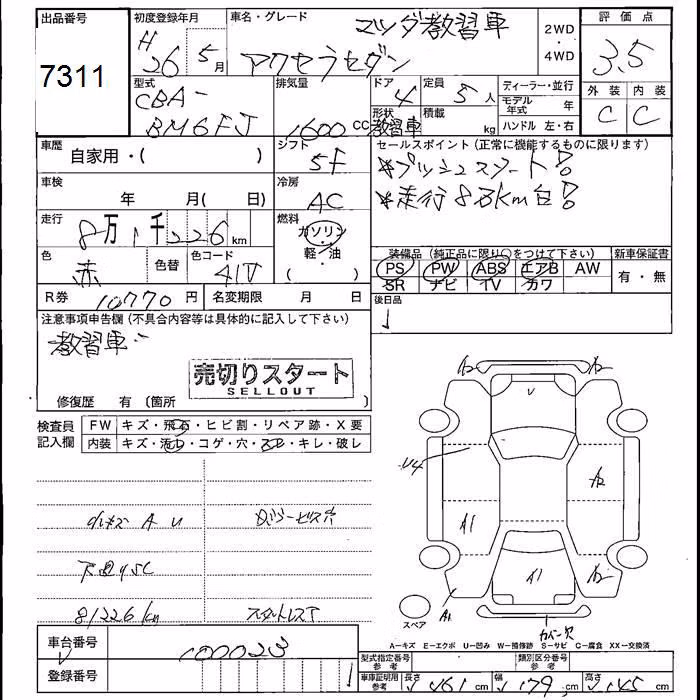 出品番号
7311
初度登録年月
H 26 5月
車名・グレード
マツダ教習車
アクセラセダン
2WD
・
4WD
評価点
3.5
外装 内装
C C
型式
CBA-
BM6FJ
排気量
1600 CC
ドア
4
形状
教習車
定員
5 人
積載
kg
ディーラー・並行
モデル年式 年
ハンドル 左・右
車歴
自家用・( )
シフト
5F
セールスポイント (正常に機能するものに限ります)
*プッシュスタート!
*走行8万km台!
車検
年 月( 日)
冷房
AC
走行
8万1千226km
燃料
ガソリン
軽/油
( )
色
赤
色替
色コード
41V
装備品 (純正品に限り○をつけて下さい)
PS PW ABS エアB AW
SR ナビ TV カワ
新車保証書
有・無
R券 10770 円
名変期限 月 日
後日品
注意事項申告欄 (不具合内容等は具体的に記入して下さい)
教習車
売切りスタート
SELLOUT
修復歴 有 〔箇所 〕
検査員
記入欄
FW キズ・飛石・ヒビ割・リペア跡・X要
内装 キズ・汚れ・コゲ・穴・スレ・キレ・破レ
小キズ A U
ダッシュビス穴
下廻りSC
81226km
スタットレスT
A2 A2
U
U4
A2
A1
A1
A2
A1
スペア
カバー欠
A−キズ E−エクボ U−凹み W−補修跡 S−サビ C−腐食 XX−交換済
車台番号
100023
登録番号
型式指定番号
参考
類別区分番号
参考
車庫証明用
参考
長さ 461 cm
幅 179 cm
高さ 145 cm